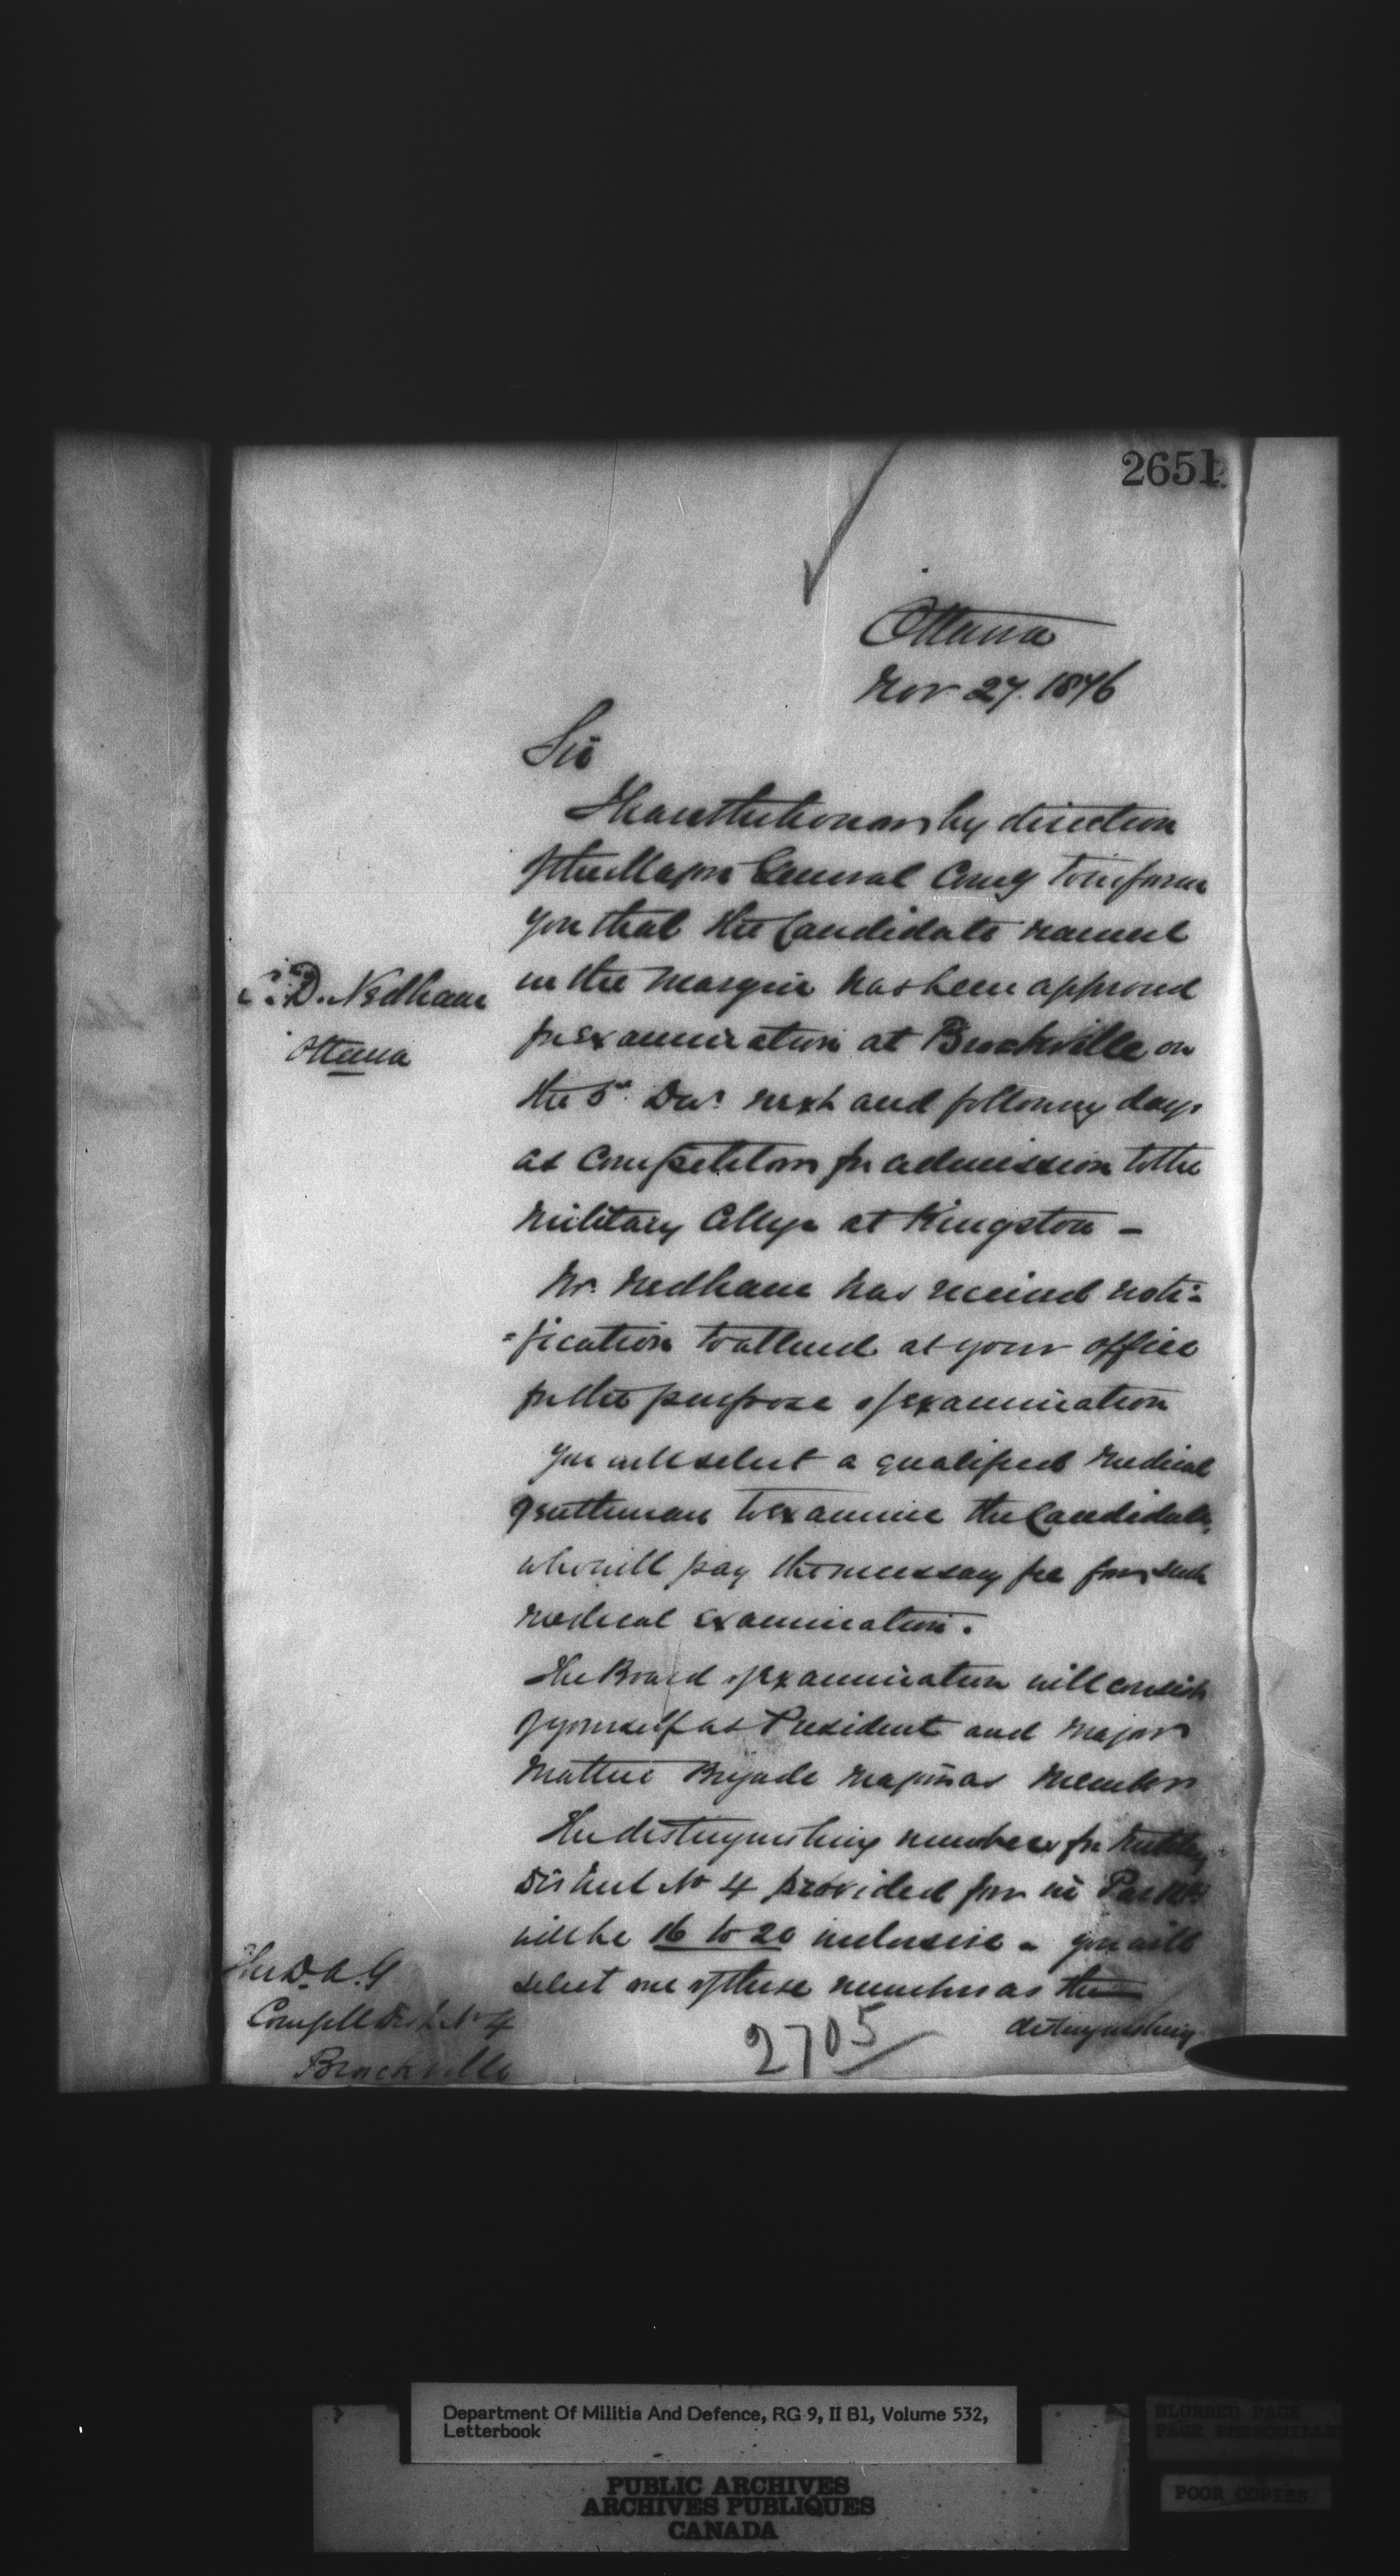 2651
Ottawa
Nov 27. 1876
Sir
I have the honor by direction
of the Major General Comg to inform
you that the Candidate named
in the margin has been approved
D. Nedham
Ottawa
for examination at Brockville on
the 5th Decr next and following days
as Competitors for admission to the
Military College at Kingston -
Mr. Nedham has received noti=
=fication to attend at your office
for the purpose of examination
You will select a qualified medical
gentleman to examine the Candidate,
who will pay the necessary fee for such
medical examination.
The Board of examination will consist
of yourself as President and Major
Mattice Brigade Major as Member
The distinguishing numbers for Military
District No 4 provided for in Par
will be 16 to 20 inclusive - you will
select one of these numbers as the
distinguishing
The D.A.G
Comg Mil Dist No 4
Brockville
2705
Department Of Militia And Defence, RG 9, II B1, Volume 532,
Letterbook
PUBLIC ARCHIVES
ARCHIVES PUBLIQUES
CANADA
BLURRED PAGE
PAGE EMBROUILLE
POOR COPIES